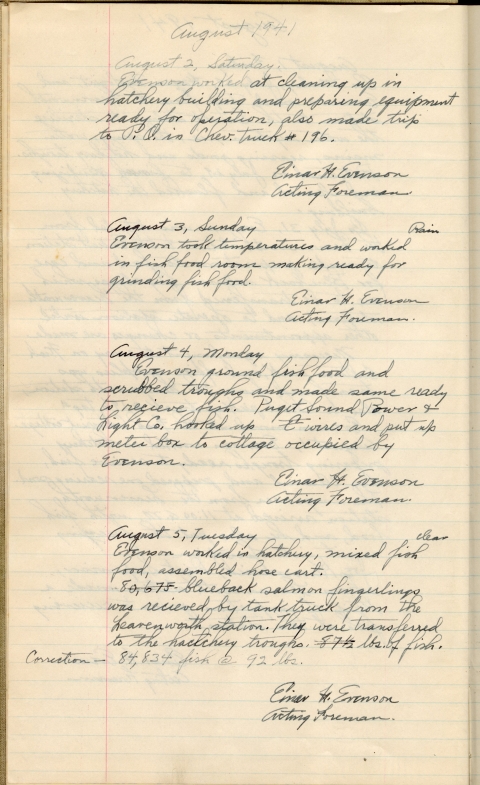 August 1941
August 2, Saturday.
Evenson worked at cleaning up in
hatchery building and preparing equipment
ready for operation, also made trip
to P.O. in Chev. truck # 196.
Einar H. Evenson
Acting Foreman.
August 3, Sunday Rain
Evenson took temperatures and worked
in fish food room making ready for
grinding fish food.
Einar H. Evenson
Acting Foreman.
August 4, Monday
Evenson ground fish food and
scrubbed troughs and made same ready
to recieve fish. Puget Sound Power &
Light Co. hooked up wires and put up
meter box to cottage occupied by
Evenson.
Einar H. Evenson
Acting Foreman.
August 5, Tuesday clear
Evenson worked in hatchery, mixed fish
food, assembled hose cart.
80,675 blueback salmon fingerlings
was recieved by tank truck from the
Leavenworth station. They were transferred
to the hactchery troughs. 87½ lbs. of fish.
Correction — 84,834 fish @ 92 lbs.
Einar H. Evenson
Acting Foreman.